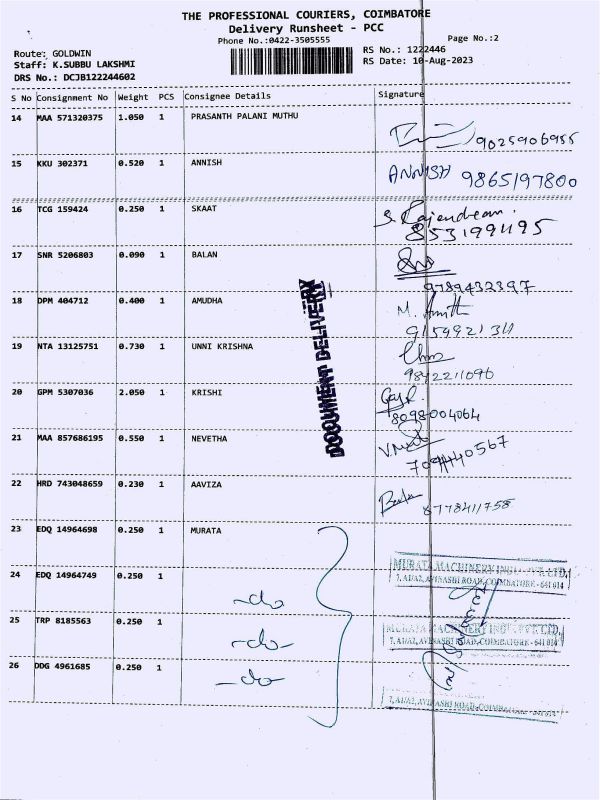 THE PROFESSIONAL COURIERS, COIMBATORE
Delivery Runsheet - PCC
Phone No.:0422-3505555
Page No.:2
Route: GOLDWIN
RS No.: 1222446
Staff: K.SUBBU LAKSHMI
RS Date: 10-Aug-2023
DRS No.: DCJB122244602
S No Consignment No Weight PCS Consignee Details Signature
14 MAA 571320375 1.050 1 PRASANTH PALANI MUTHU
9025906955
15 KKU 302371 0.520 1 ANNISH ANNISH 9865197800
16 TCG 159424 0.250 1 SKAAT S. Rajendran.
8531991195
17 SNR 5206803 0.090 1 BALAN
9789432397
18 DPM 404712 0.400 1 AMUDHA M. Amith
9159921311
19 NTA 13125751 0.730 1 UNNI KRISHNA
9842211096
20 GPM 5307036 2.050 1 KRISHI
8098004064
21 MAA 857686195 0.550 1 NEVETHA
22 HRD 743048659 0.230 1 AAVIZA
8778411758
DOCUMENT DELIVERY
23 EDQ 14964698 0.250 1 MURATA
MURATA MACHINERY INDIA PVT. LTD.,
24 EDQ 14964749 0.250 1
7, A1/A2, AVINASHI ROAD, COIMBATORE - 641 014
-do-
25 TRP 8185563 0.250 1
MURATA MACHINERY INDIA PVT. LTD.,
7, A1/A2, AVINASHI ROAD, COIMBATORE - 641 014
-do-
26 DDG 4961685 0.250 1
-do-
7, A1/A2, AVINASHI ROAD, COIMBATORE